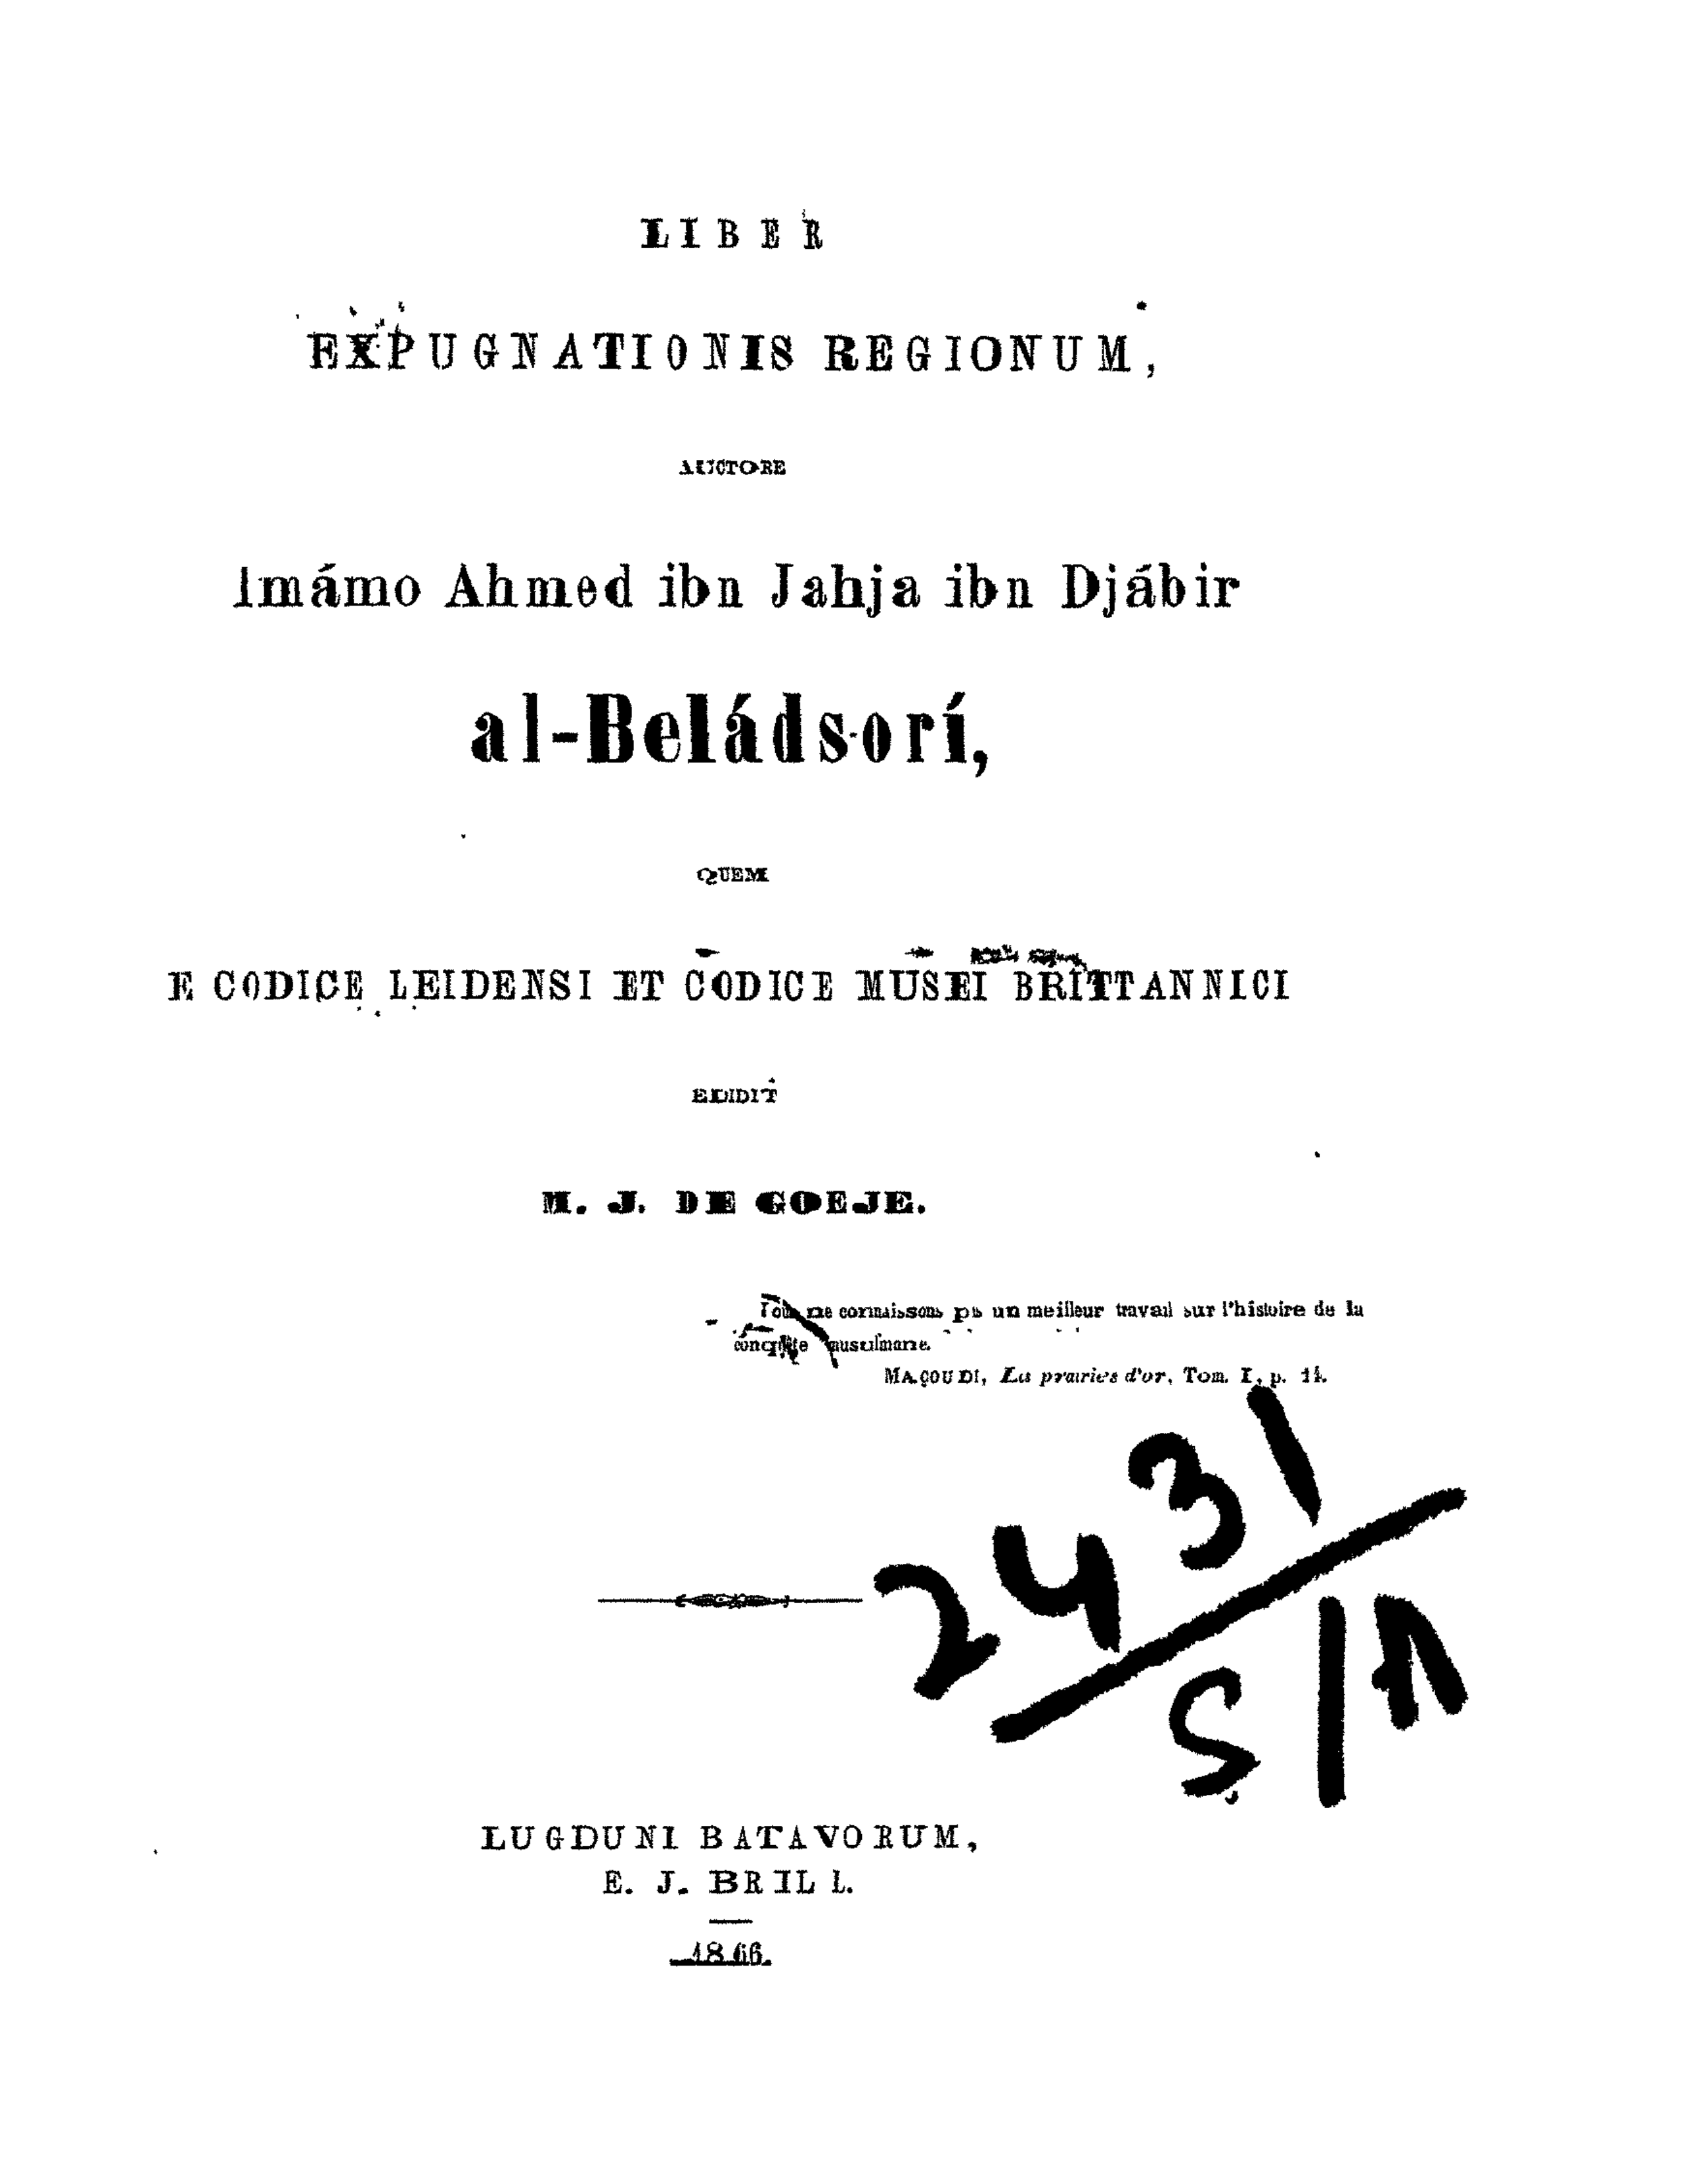 LIBER
EXPUGNATIONIS REGIONUM,
AUCTORE
Imámo Ahmed ibn Jahja ibn Djábir
al-Beládsorí,
QUEM
E CODICE LEIDENSI ET CODICE MUSEI BRITTANNICI
EDIDIT
M. J. DE GOEJE.
ne connaissons pas un meilleur travail sur l'histoire de la
conquête musulmane.
MAÇOUDI, Les prairies d'or, Tom. I, p. 14.
2431
S/A
LUGDUNI BATAVORUM,
E. J. BRILL.
1866.